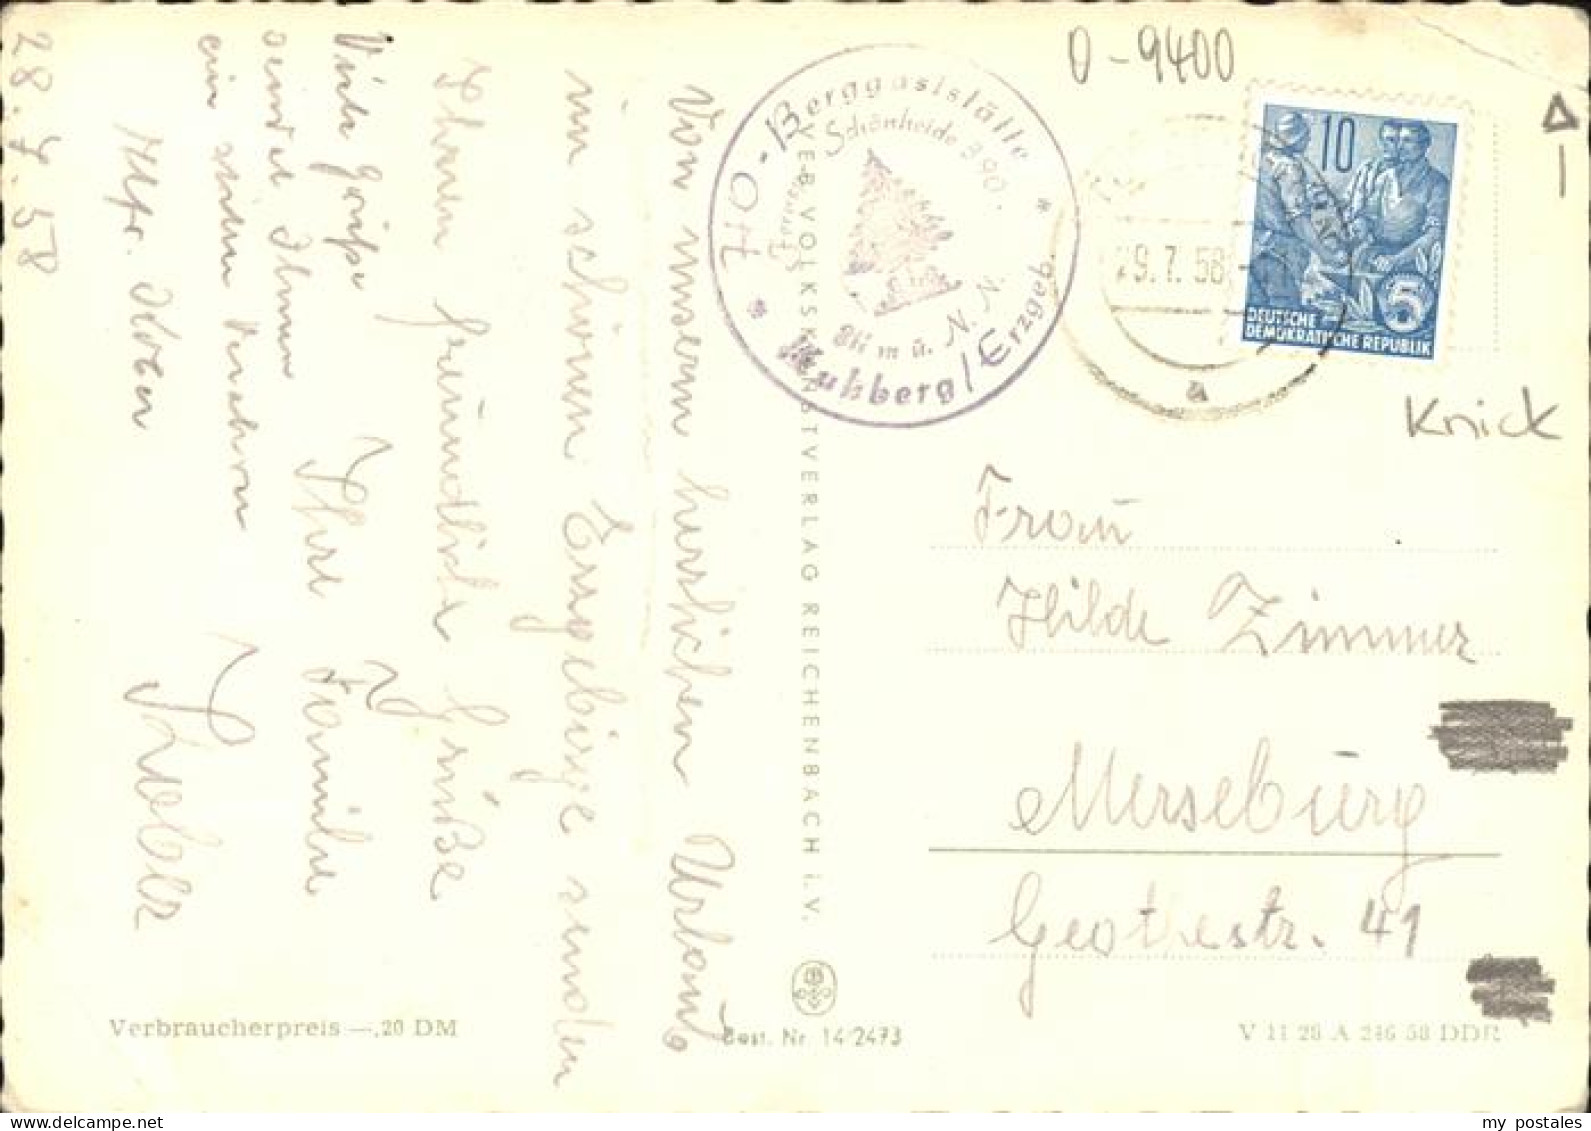 28.7.58
Von unserm herrlichen Urlaub
im schönen Erzgebirge senden
Ihnen freundliche Grüße
Ihre Familie
Viele Grüße
sendet Ihnen
ein
HO-Berggaststätte
Schönheide 390.
Fernruf
811 m ü. N.N.
* Kuhberg/Erzgeb. *
VEB VOLKSKUNSTVERLAG REICHENBACH i.V.
O-9400
29.7.58
a
10
5
DEUTSCHE
DEMOKRATISCHE REPUBLIK
Knick
Frau
Hilde Zimmer
Merseburg
Geothestr. 41
Verbraucherpreis —,20 DM
Best. Nr. 14/2473
V 11 28 A 246 58 DDR
my postales